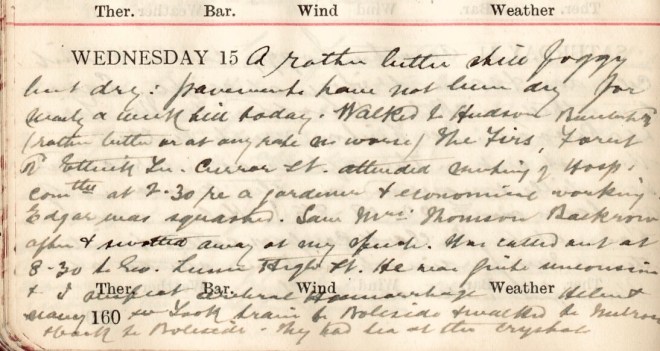 Ther. Bar. Wind Weather
WEDNESDAY 15 A rather better still foggy
but dry: pavements have not been dry for
nearly a week till today. Walked to Hudson
(rather better or at any rate no worse) The Firs, Forest
Rd Ettrick Curror St. attended meeting of Hosp.
comttee at 2-30 re a gardener & economical working
Edgar was squashed. Saw Mrs Thomson Backrow
after & swotted away at my speech. Was called out at
8-30 to Geo. High St. He was quite unconscious
Ther. Bar. Wind Weather
& I suspect cerebral Haemorrhage Helen &
160 took train to Boleside & walked to Melrose
& back to Boleside - They had tea at the